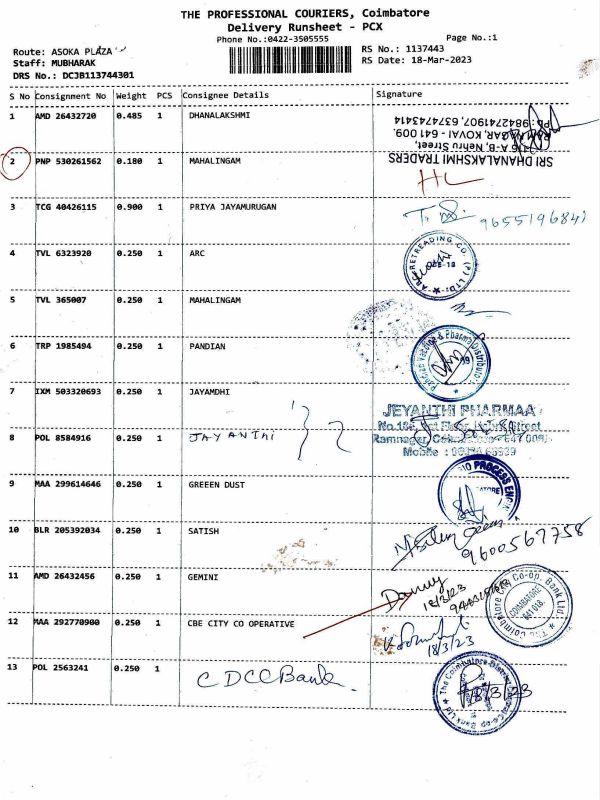 THE PROFESSIONAL COURIERS, Coimbatore
Delivery Runsheet - PCX
Phone No.:0422-3505555
Page No.:1
Route: ASOKA PLAZA
RS No.: 1137443
Staff: MUBHARAK
RS Date: 18-Mar-2023
DRS No.: DCJB113744301
S No Consignment No Weight PCS Consignee Details Signature
1 AMD 26432720 0.485 1 DHANALAKSHMI
SRI DHANALAKSHMI TRADERS
116 A-B, Nehru Street,
RAM NAGAR, KOVAI - 641 009.
PH: 9842741907, 6374743414
2 PNP 530261562 0.180 1 MAHALINGAM
HL
3 TCG 40426115 0.900 1 PRIYA JAYAMURUGAN
9655196841
4 TVL 6323920 0.250 1 ARC
ARC RETREADING CO. (P) LTD.
5 TVL 365007 0.250 1 MAHALINGAM
6 TRP 1985494 0.250 1 PANDIAN
7 IXM 503320693 0.250 1 JAYAMDHI
JEYANTHI PHARMAA
8 POL 8584916 0.250 1 JAYANTHI
9 MAA 299614646 0.250 1 GREEEN DUST
10 BLR 205392034 0.250 1 SATISH
9600567758
11 AMD 26432456 0.250 1 GEMINI
18/3/23
12 MAA 292770900 0.250 1 CBE CITY CO OPERATIVE
The Coimbatore City Co-op. Bank Ltd
COIMBATORE
641 018.
18/3/23
13 POL 2563241 0.250 1 CDCC Bank
18/3/23